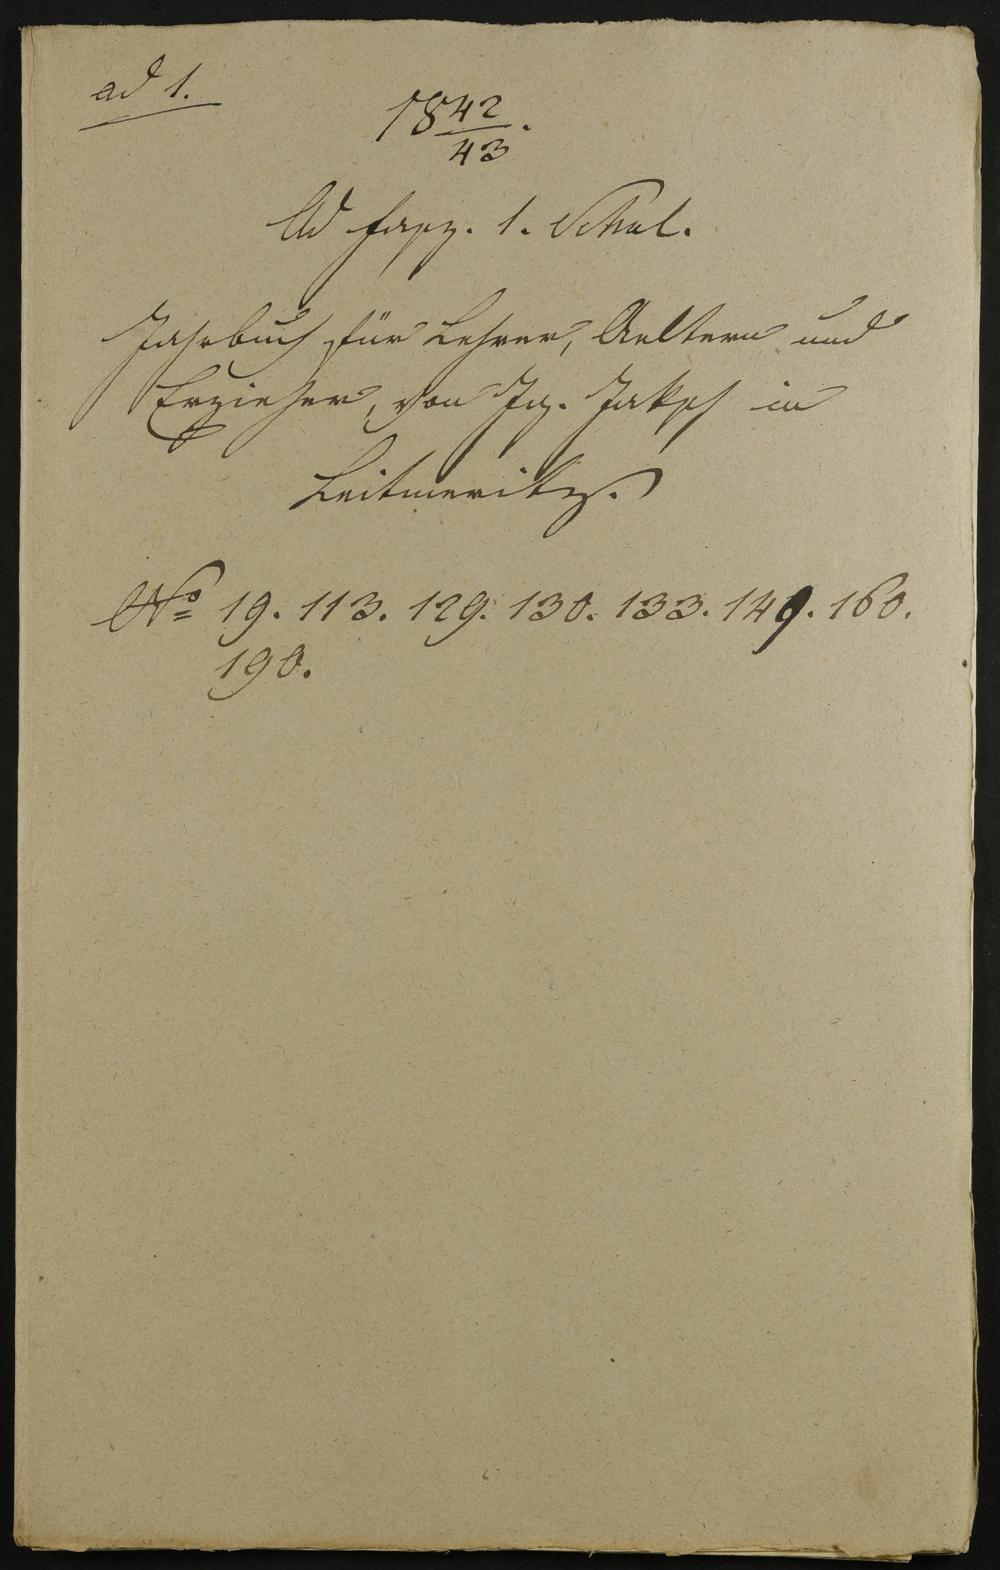 ad 1.
1842/43.
Ad fasz. 1. Schul.
Jahrbuch für Lehrer, Aeltern und
Erzieher, von Ig. Jaksch in
Leitmeritz.
No 19. 113. 129. 130. 133. 149. 160.
190.